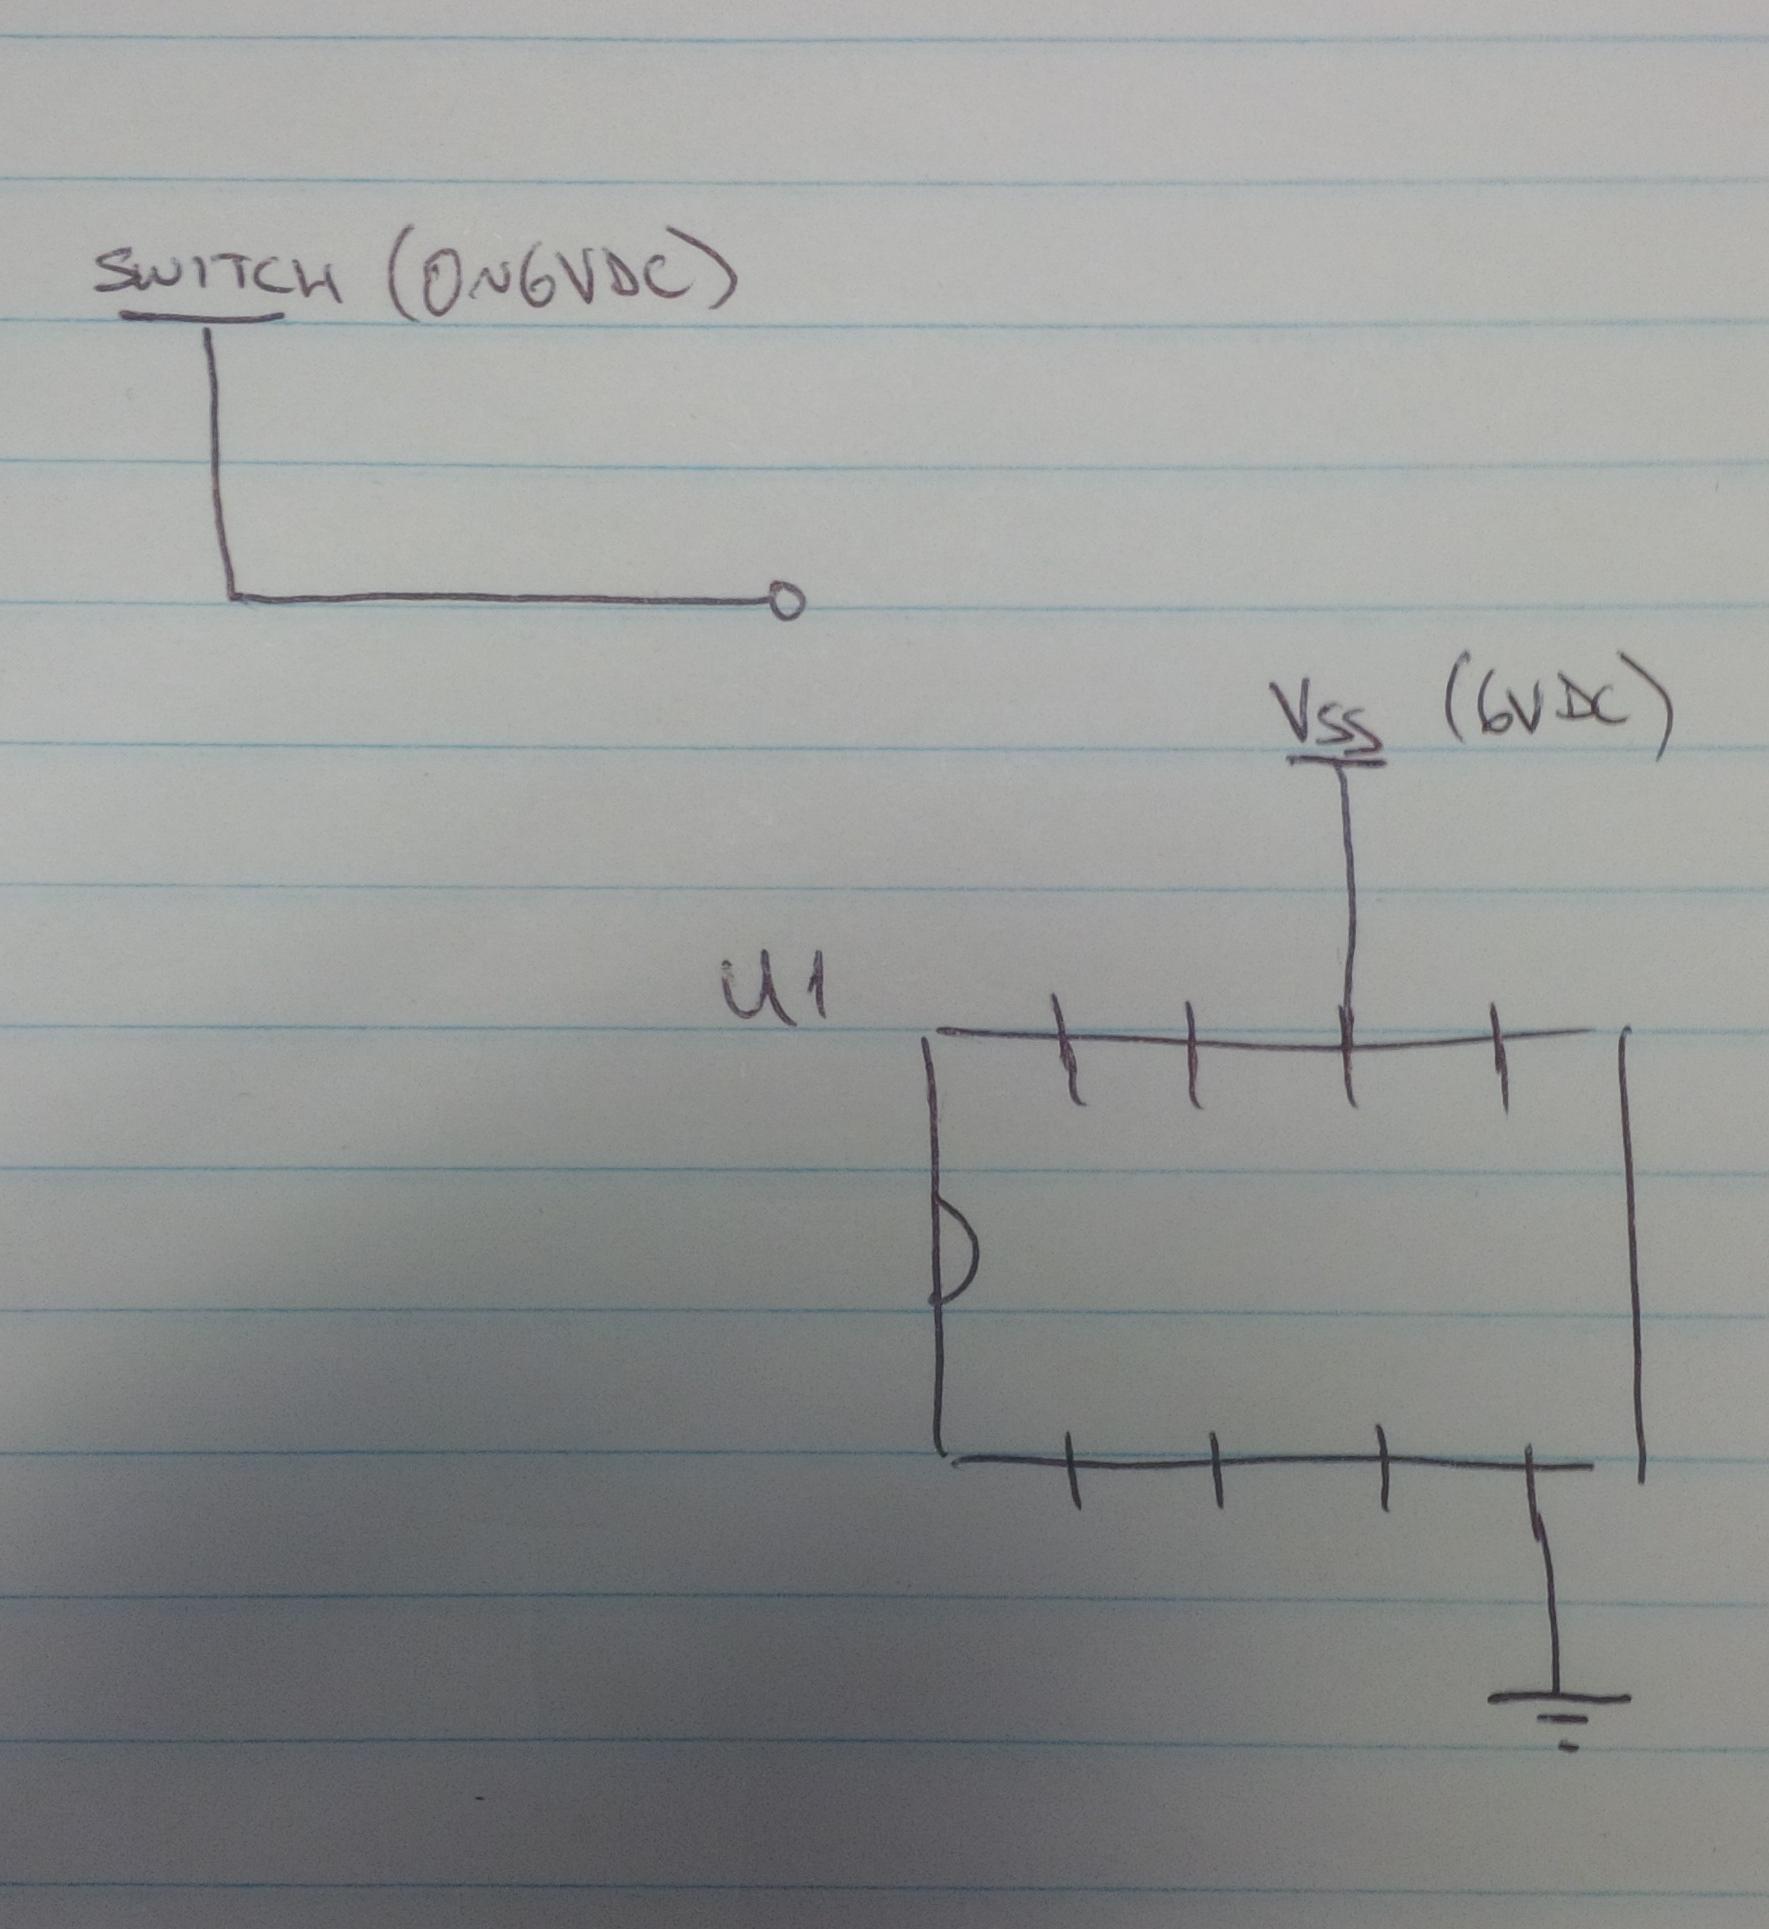 SWITCH (0~6VDC)
VSS (6VDC)
U1